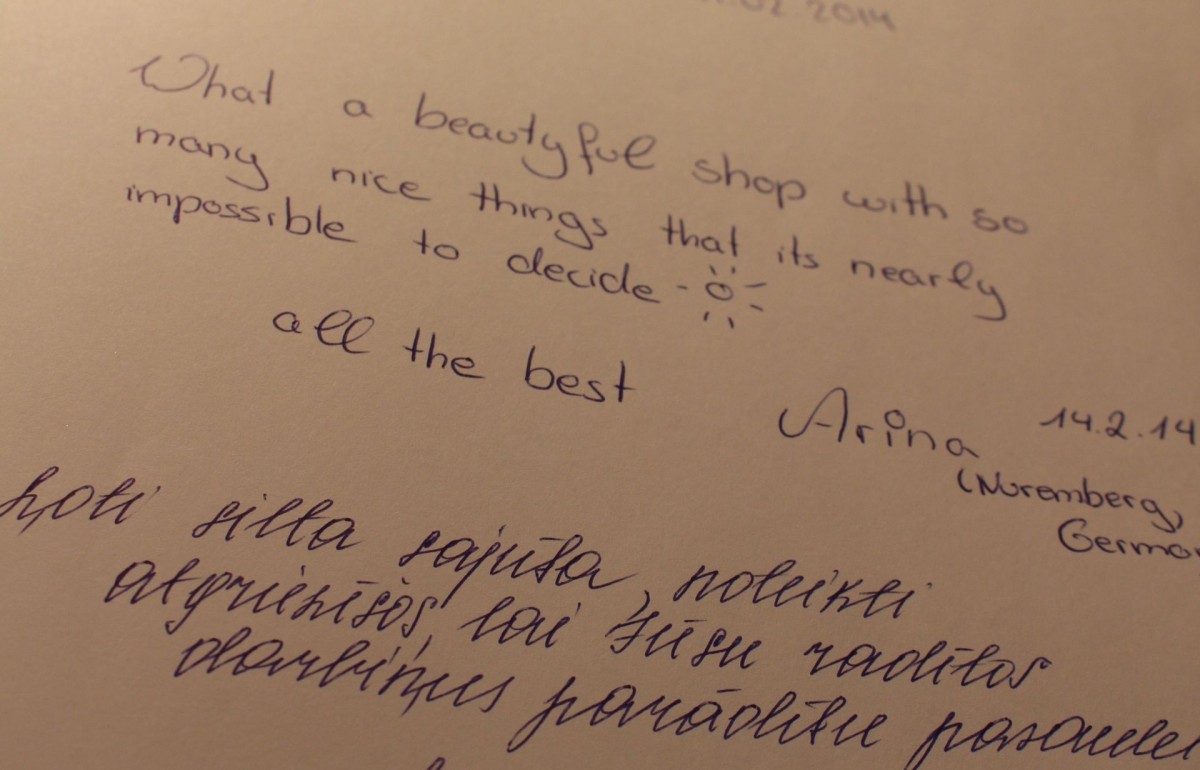 .02.2014
What a beautyful shop with so
many nice things that its nearly
impossible to decide
all the best
Arina 14.2.14
(Nuremberg,
German
ļoti silta sajūta, noteikti
atgriezīšos, lai Jūsu radītos
darbiņus parādītu pasaulei